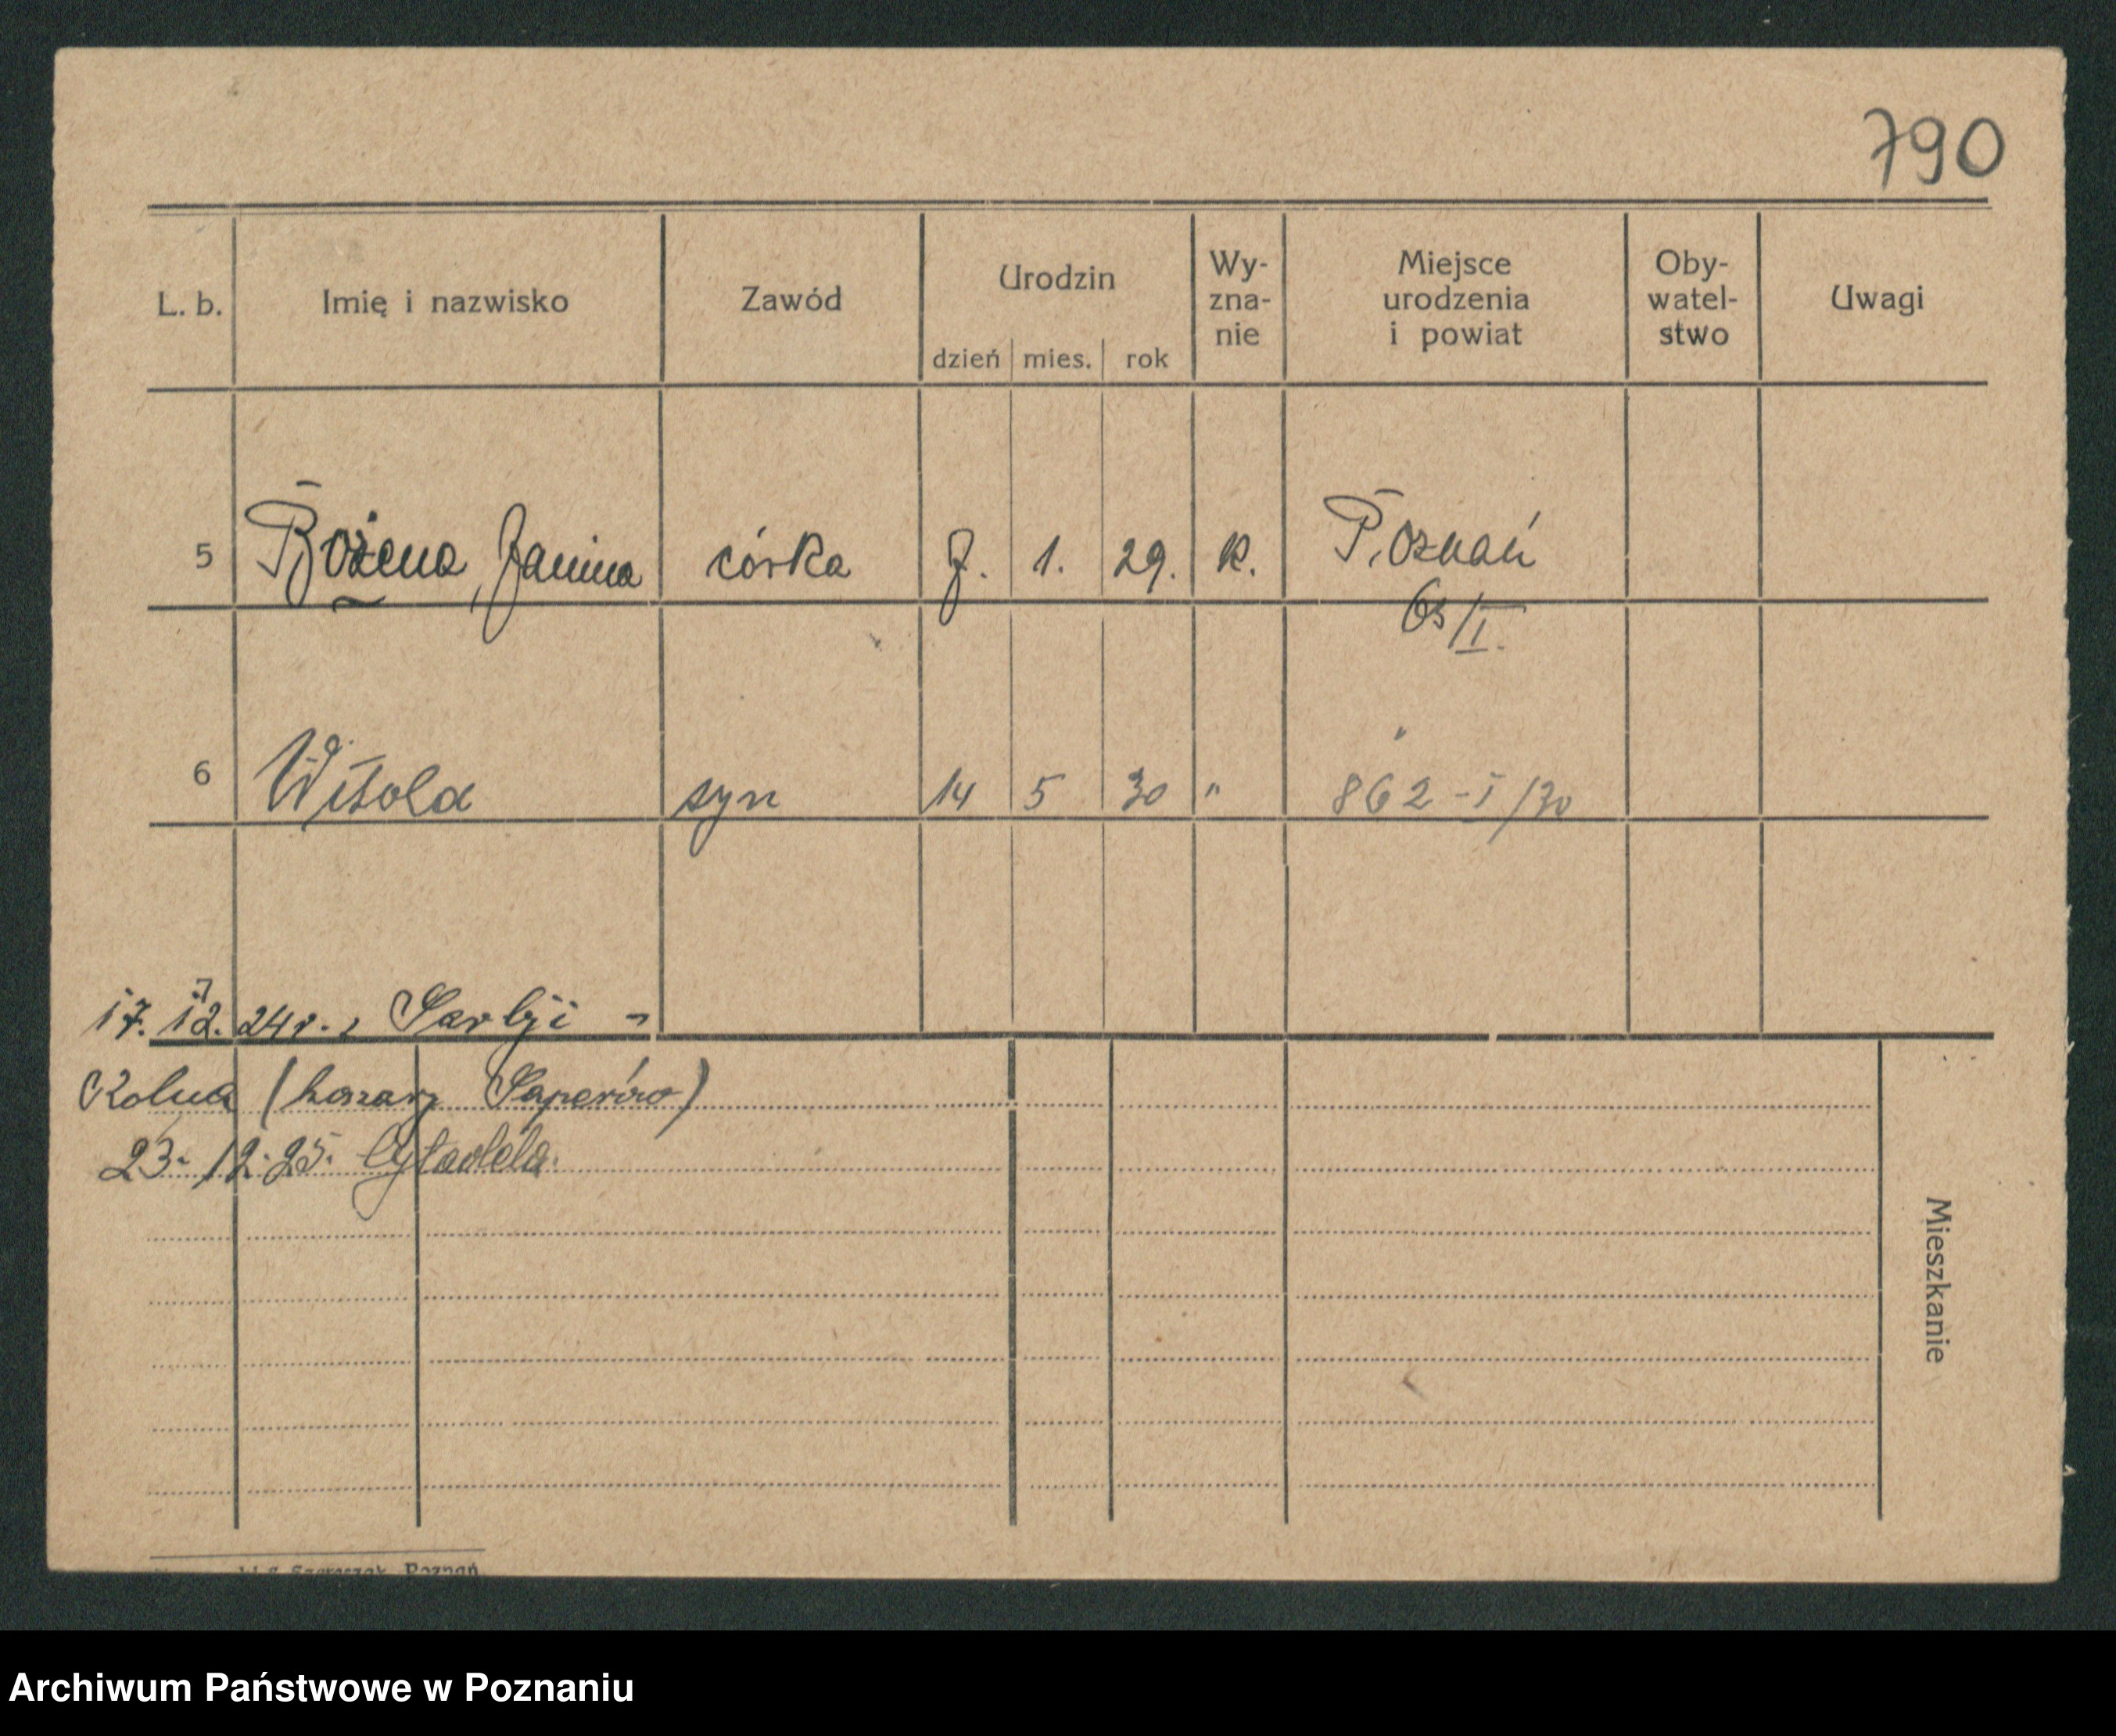 790
L. b.
Imię i nazwisko
Zawód
Urodzin
dzień mies. rok
Wy-
zna-
nie
Miejsce
urodzenia
i powiat
Oby-
watel-
stwo
Uwagi
5 Bożena, Janina córka 7. 1. 29. K. Poznań
63/I.
6 Witold syn 14 5 30 " "
862-I/30
7
17. 12. 24r.,
(
Saperów)
23. 12. 25. Cytadela
Mieszkanie
Poznań
Archiwum Państwowe w Poznaniu